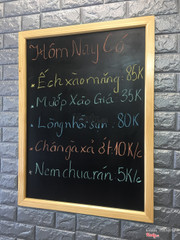 Hôm Nay Có
. Ếch xào măng: 85K
. Mướp Xào Giá 35K
. Lòng nhồi sụn: 80K
. Chân gà xả ớt 10K/c
. Nem chua rán 5K/c